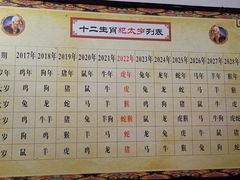 十二生肖犯太岁列表
期 2017年 2018年 2019年 2020年 2021年 2022年 2023年 2024年 2025年 2026年 2027年 2028年
年 鸡年 狗年 猪年 鼠年 牛年 虎年 兔年 龙年 蛇年 马年 羊年 猴年
岁 鸡 狗 猪 鼠 牛 虎 兔 龙 蛇 马 羊 猴
岁 兔 龙 蛇 马 羊 猴 鸡 狗 猪 鼠 牛 虎
岁 鸡 牛羊 虎猴 兔 蛇猴 鼠 牛
岁 狗 鸡 猴 羊 马 蛇 龙 兔 虎 牛 鼠 猪